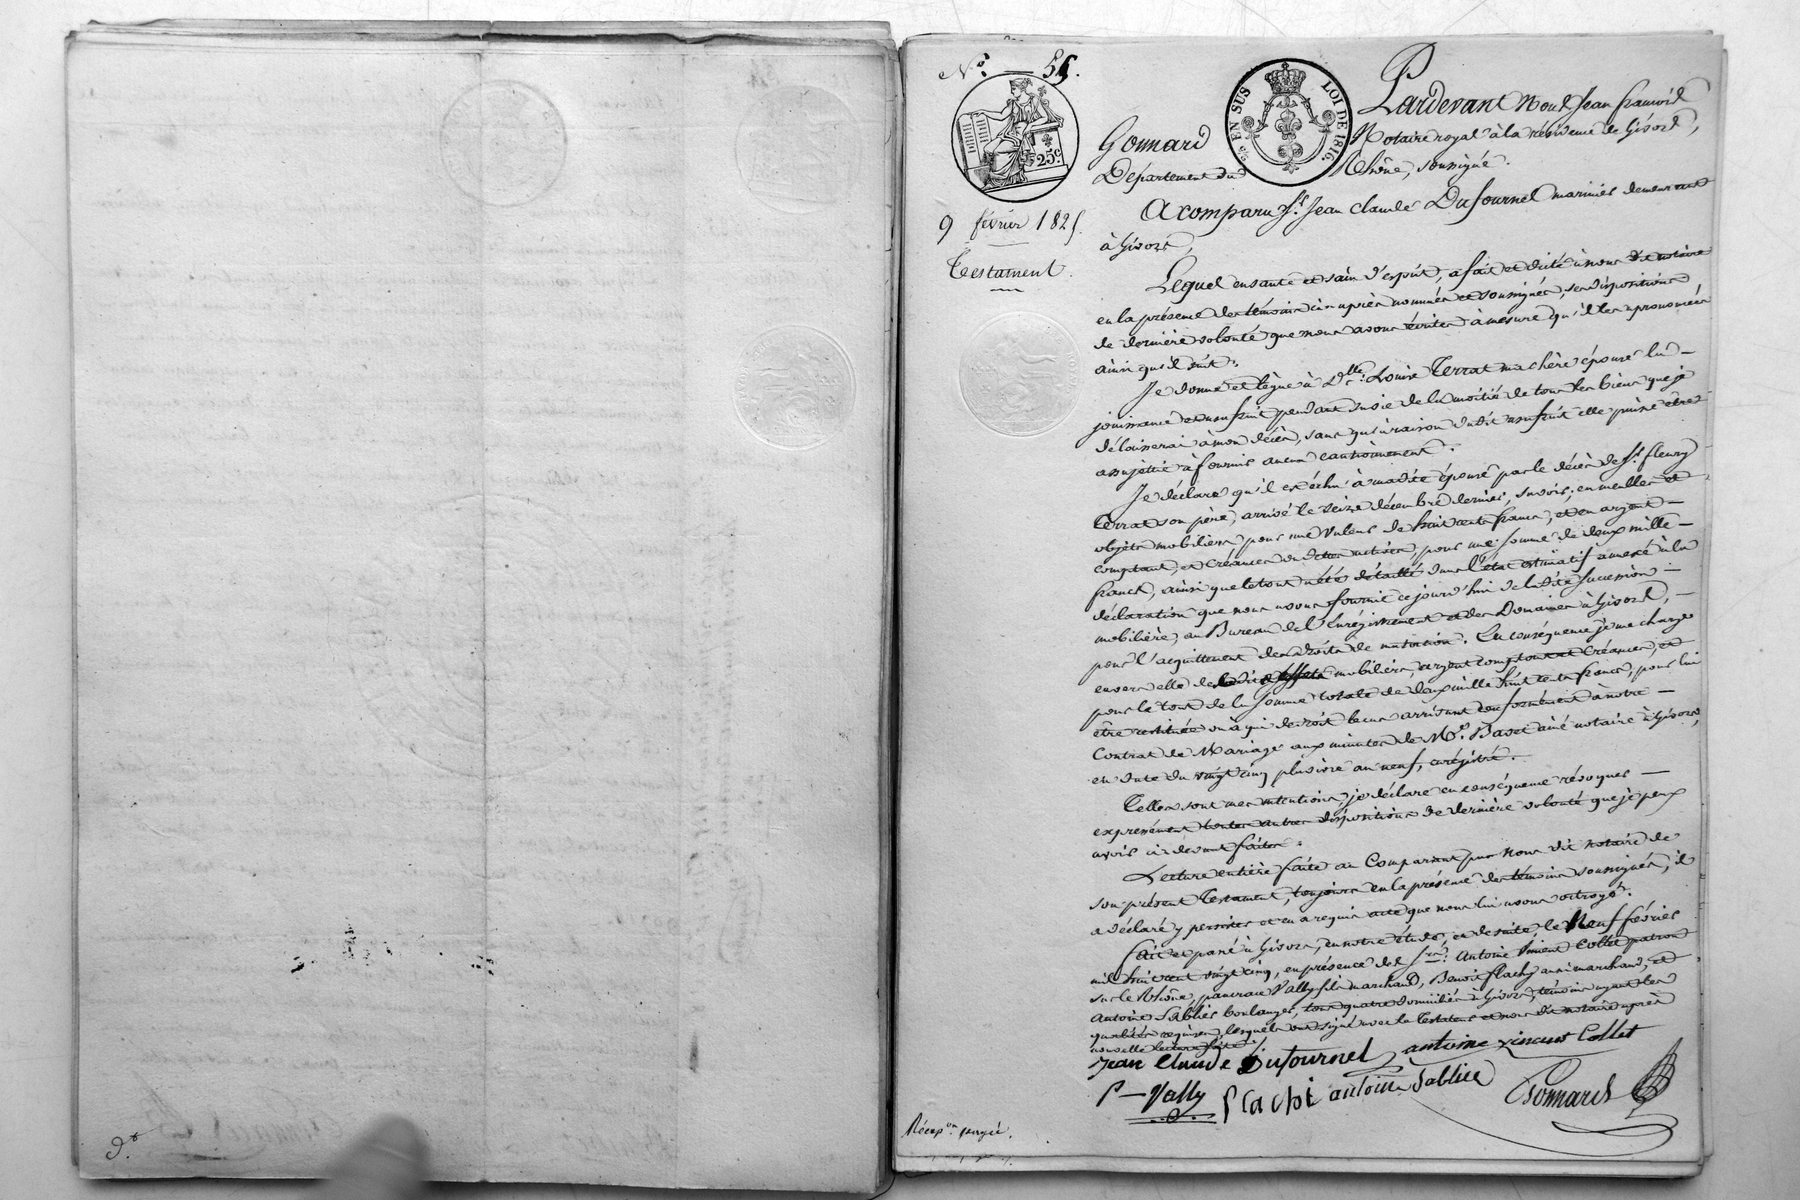 N.º — 55.
EN SUS
LOI DE 1816.
25 c.
Pardevant Nous Jean françois
Gonnard Notaire royal à la résidence de Givors,
Département du Rhône, soussigné.
9 février 1825.
Testament.
A comparu Sr. Jean Claude Dufournel marinier demeurant
à Givors,
Lequel en santé et sain d'esprit, a fait et dicté à nous dit notaire
en la présence des témoins ci-après nommés et soussignés, ses dispositions
de dernière volonté que nous avons écrites à mesure qu'il les a prononcées
ainsi qu'il suit.
Je donne et lègue à Dlle. Louise Terrat ma chère épouse la
jouissance et usufruit pendant sa vie de la moitié de tous les biens que je
délaisserai à mon décès, sans qu'à raison dudit usufruit elle puisse être
assujettie à fournir aucun cautionnement.
Je déclare qu'il est échu à madite épouse par le décès de Sr. fleury
Terrat son père, arrivé le seize décembre dernier, savoir; en meubles et
objets mobiliers pour une valeur de huit cents francs, et en argent
comptant, et créances ou dettes actives, pour une somme de deux mille
francs, ainsi que le tout a été détaillé dans l'état estimatif annexé à la
déclaration que nous avons fournie ce jourd'hui de ladite succession
mobilière, au Bureau de l'Enrégistrement et des Domaines à Givors,
pour l'acquittement des droits de mutation. En conséquence je me charge
envers elle desdits effets mobiliers, argent comptant et créances, et
pour le tout de la somme totale de deux mille huit cents francs, pour lui
être restituée ou à qui de droit le cas arrivant conformément à notre
Contrat de Mariage aux minutes de Me. Baset ainé notaire à Givors,
en date du vingt cinq pluviose an neuf, enrégistré.
Telles sont mes intentions, je déclare en conséquence révoquer
expressément toutes autres dispositions de dernière volonté que je peux
avoir ci-devant faites.
Lecture entière faite au Comparant par Nous dit notaire de
son présent Testament, toujours en la présence des témoins soussignés, il
a déclaré y persister et en a requis acte que nous lui avons octroyé.
Fait et passé à Givors, en notre étude, et de suite, le Neuf février
mil huit cent vingt cinq, en présence des Srs. Antoine Vincent Collet patron
sur le Rhône, pancrace Vally fils marchand, Benoit flachy aussi marchand, et
Antoine Sablier boulanger, tous quatre domiciliés à Givors, témoins ayant les
qualités requises, lesquels ont signé avec le testateur et nous dit notaire après
nouvelle lecture faite.
Jean Claude Dufournel antoine vincent Collet
P — Vally flachi antoine Sablier Gonnard